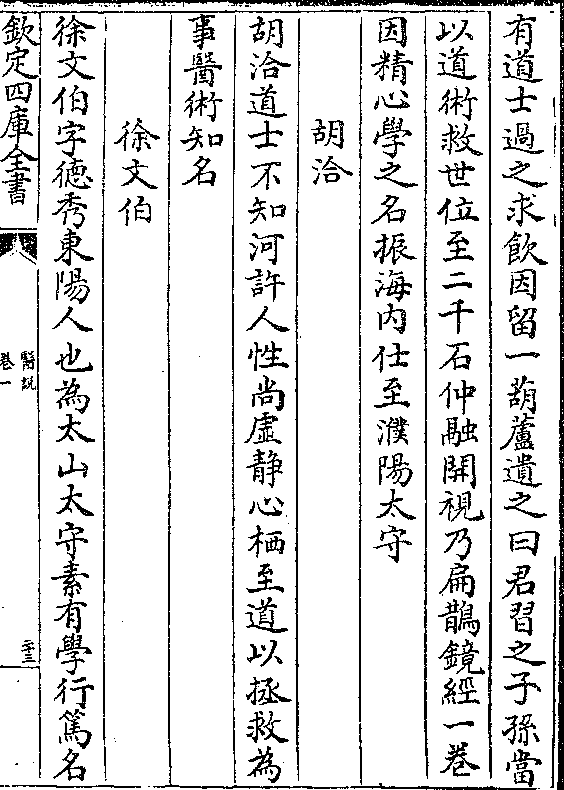 有道士過之求飲因留一葫蘆遺之曰君習之子孫當
以道術救世位至二千石仲融開視乃扁鵲鏡經一卷
因精心學之名振海内仕至濮陽太守
胡洽
胡洽道士不知河許人性尚虛静心栖至道以拯救為
事醫術知名
徐文伯
徐文伯字德秀東陽人也為太山太守素有學行篤名
欽定四庫全書
醫説
卷一
二十三